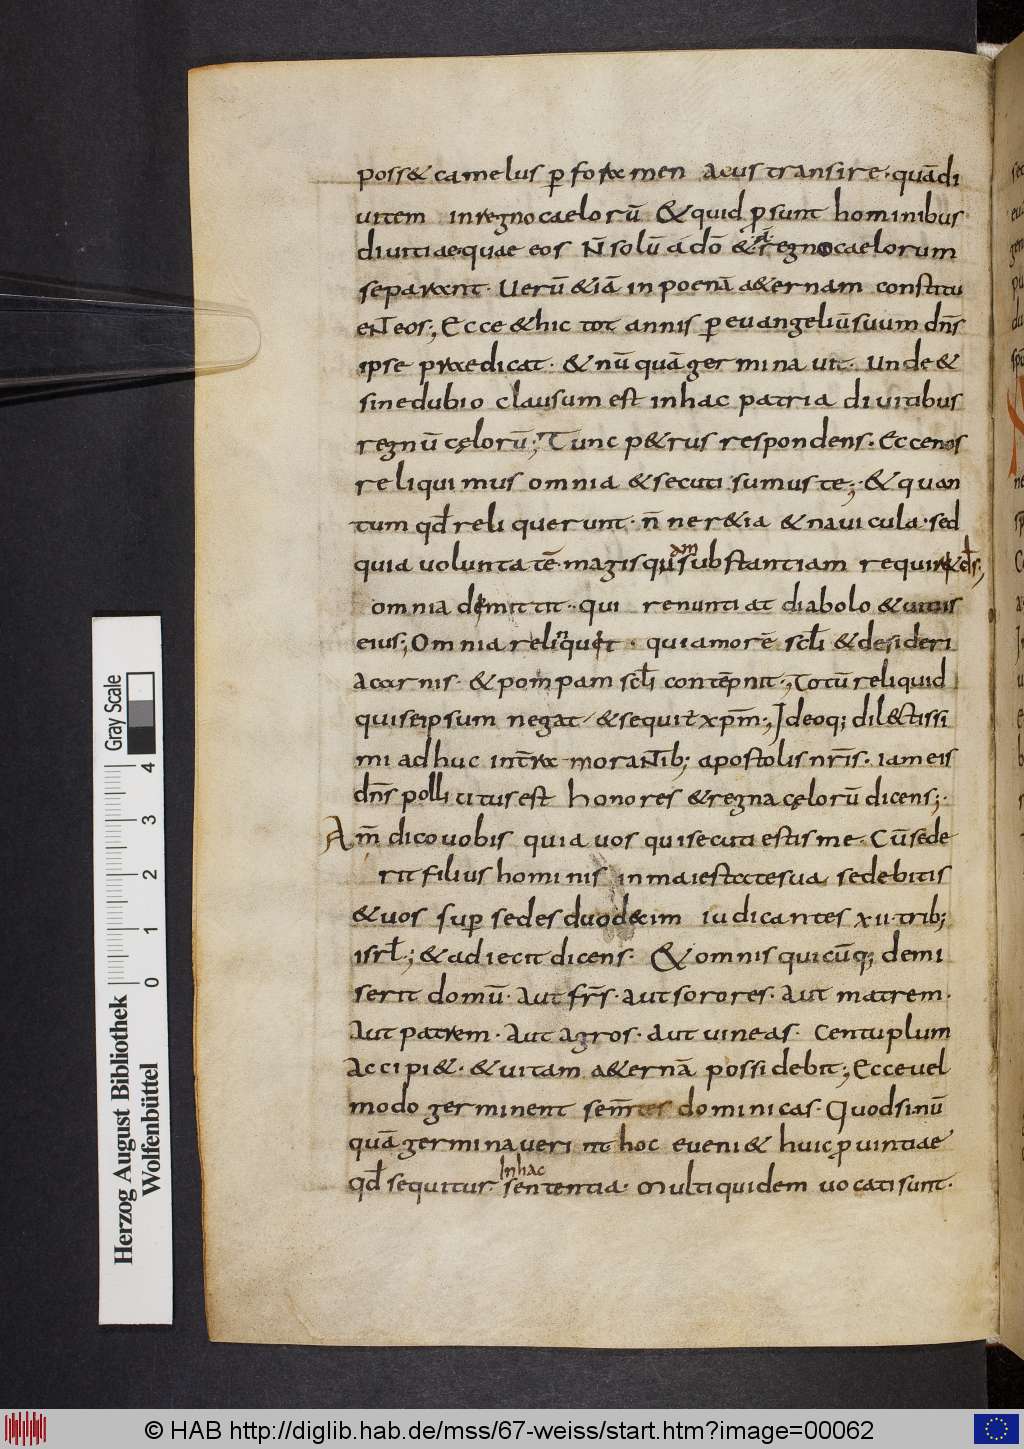 poss& camelus ꝑ foramen acus transire · quā di
uitem in regno caelorū & quid ꝓsunt hominibus
diuitiae · quae eos N̄ solū á dō & á regno caelorum
separant · Uerū & iā in poenā a&ernam constitu
eNt eos ; Ecce & hic tot annis ꝑ euangeliū suum dn̄s
ipse praedicat · & nū quā germinauit · Unde &
sine dubio clausum est in hac patria diuitibus
regnū cęlorū ; Tunc p&rus respondens · Ecce nos
reliquimus omnia & secuti sumus te ; & quan
tum qđ reliquerunt · n̄ ner & ia & nauicula · sed
quia uoluntatē magis quam substantiam requir& dꝰ ;
omnia demittit · qui renuntiat diabolo & uitiis
eius ; Omnia relinquet · qui amorē scłi & desideri
a carnis · & pompam scłi contēpnit ; Totū reliquid
qui seipsum negat · & sequit xp̄m ; Ideoq; dilectissi
mi adhuc int̄ra moraNtib; apostolis nr̄is · iam eis
dn̄s pollicitus est honores & regna cęlorū dicens ;
Am̄ dico uobis quia uos qui secuti estis me · Cū sede
rit filius hominis in maiestate sua sedebitis
& uos suꝑ sedes duodecim iudicantes xii · trib;
isrł ; & adiecit dicens · Et omnis quicūq; demi
serit domū · aut fr̄s · aut sorores · aut matrem ·
aut patrem · aut agros · aut uineas · Centuplum
accipi& · & uitam a&ernā possidebit ; Ecce uel
modo germinent sem̄tes dominicas · Quod si nū
quā germinauerint hoc eueni& huic ꝓuintiae
qđ sequitur in hac sententia · Multi quidem uocati sunt ·
Gray Scale
0 1 2 3 4
Herzog August Bibliothek
Wolfenbüttel
© HAB http://diglib.hab.de/mss/67-weiss/start.htm?image=00062